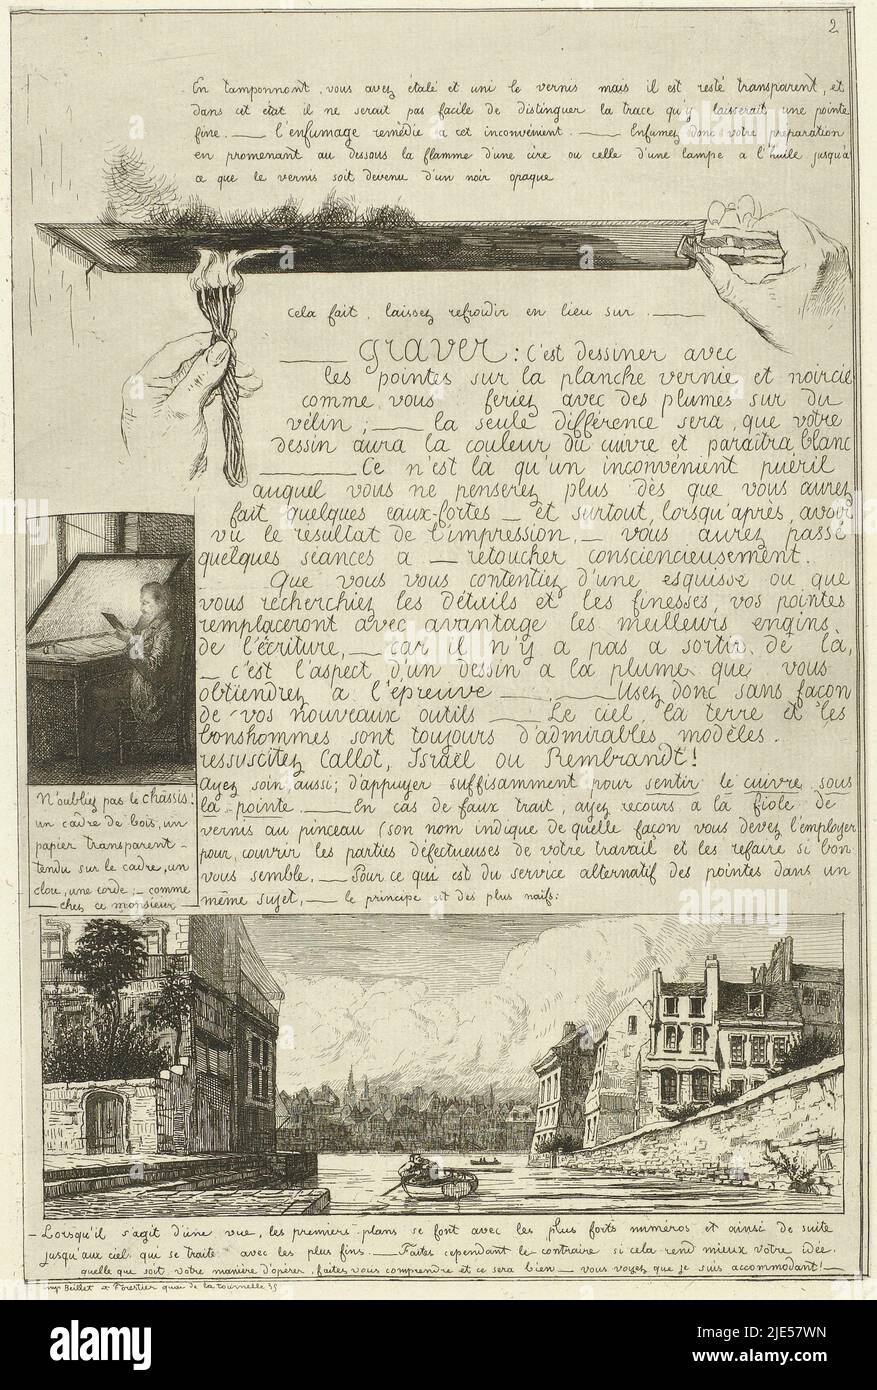 2
En tamponnant, vous avez étalé et uni le vernis mais il est resté transparent, et
dans cet état il ne serait pas facile de distinguer la trace qu'y laisserait une pointe
fine. — l'enfumage remédie a cet inconvénient. — Enfumez donc votre préparation
en promenant au dessous la flamme d'une cire ou celle d'une lampe a l'huile jusqu'a
ce que le vernis soit devenu d'un noir opaque
cela fait, laissez refroidir en lieu sur. —
— graver: c'est dessiner avec
les pointes sur la planche vernie et noircie
comme vous feriez avec des plumes sur du
vélin; — la seule différence sera, que votre
dessin aura la couleur du cuivre et paraîtra blanc
— Ce n'est là qu'un inconvénient puéril
auquel vous ne penserez plus dès que vous aurez
fait quelques eaux-fortes — et surtout, lorsqu'après, avoir
vu le résultat de l'impression, — vous aurez passé
quelques séances a — retoucher consciencieusement.
Que vous vous contentiez d'une esquisse ou que
vous recherchiez les détails et les finesses, vos pointes
remplaceront avec avantage les meilleurs engins
de l'écriture, — car il n'y a pas a sortir de là,
— c'est l'aspect d'un dessin a la plume que vous
obtiendrez a l'épreuve —. — Usez donc sans façon
de vos nouveaux outils — Le ciel, la terre et les
bonshommes sont toujours d'admirables modèles.
ressuscitez Callot, Israël ou Rembrandt!
Ayez soin, aussi; d'appuyer suffisamment pour sentir le cuivre sous
la pointe. — En cas de faux trait, ayez recours a la fiole de
vernis au pinceau (son nom indique de quelle façon vous devez l'employer
pour, couvrir les parties défectueuses de votre travail et les refaire si bon
vous semble. — Pour ce qui est du service alternatif des pointes dans un
même sujet, — le principe est des plus naïfs:
N'oubliez pas le châssis!
un cadre de bois, un
papier transparent —
tendu sur le cadre, un
clou, une corde; — comme
— chez ce monsieur —
— Lorsqu'il s'agit d'une vue, les premiers-plans se font avec les plus forts numéros et ainsi de suite
jusqu'au ciel qui se traite avec les plus fins. — Faites cependant le contraire si cela rend mieux votre idée.
quelle que soit votre manière d'opérer, faites vous comprendre et ce sera bien — vous voyez que je suis accommodant! —
imp Beillet et Forestier quai de la tournelle 35
alamy
Image ID: 2JE57WN
www.alamy.com